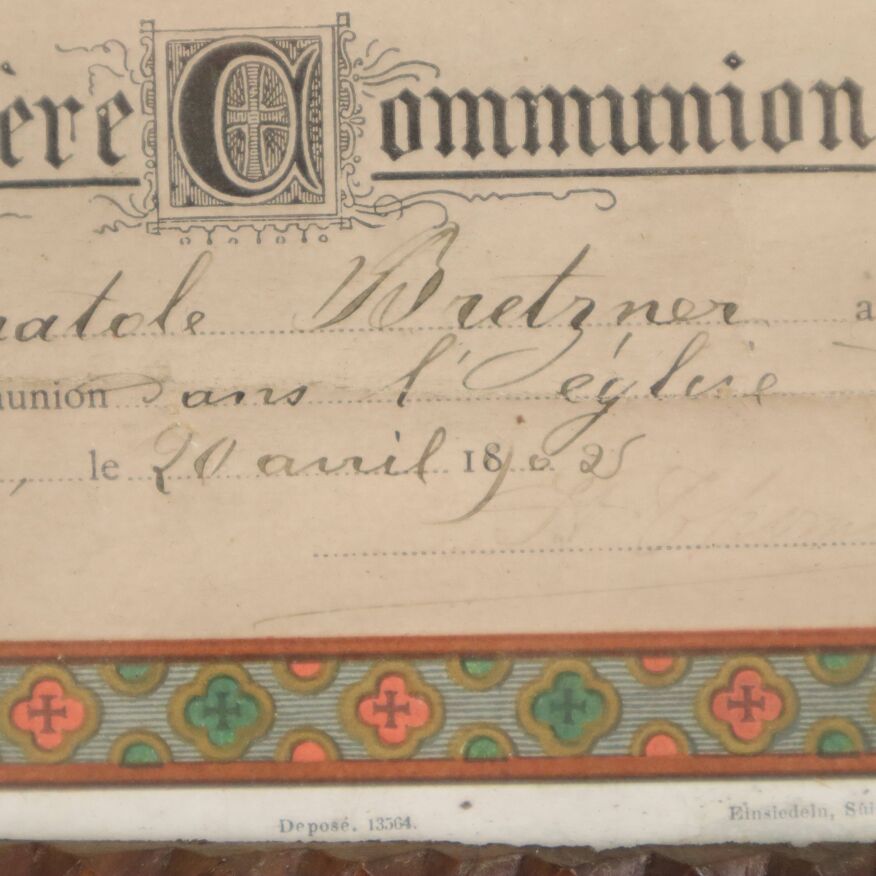 ère Communion
natole Bretzner a
munion dans l'église
, le 20 avril 1902
Deposé. 13564.
Einsiedeln, Sui